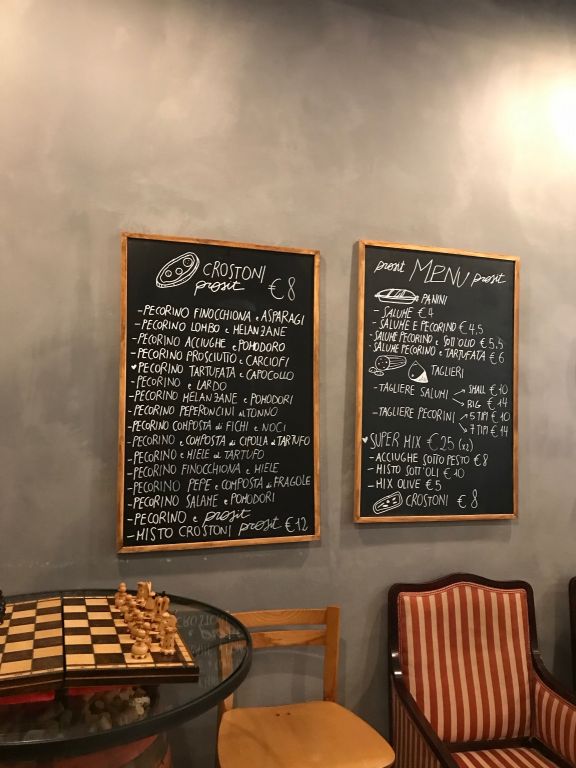 CROSTONI
prosit €8
-PECORINO FINOCCHIONA e ASPARAGI
-PECORINO LOMBO e MELANZANE
-PECORINO ACCIUGHE e POMODORO
-PECORINO PROSCIUTTO e CARCIOFI
♥PECORINO TARTUFATA e CAPOCOLLO
-PECORINO e LARDO
-PECORINO MELANZANE e POMODORI
-PECORINO PEPERONCINI al TONNO
-PECORINO COMPOSTA di FICHI e NOCI
-PECORINO e COMPOSTA di CIPOLLA al TARTUFO
-PECORINO e MIELE al TARTUFO
-PECORINO FINOCCHIONA e MIELE
-PECORINO PEPE e COMPOSTA di FRAGOLE
-PECORINO SALAME e POMODORI
-PECORINO e prosit
-MISTO CROSTONI prosit €12
prosit MENU prosit
PANINI
-SALUME €4
-SALUME E PECORINO €4,5
-SALUME PECORINO e SOTT'OLIO €5,5
-SALUME PECORINO e TARTUFATA €6
TAGLIERI
-TAGLIERE SALUMI SMALL €10
BIG €14
-TAGLIERE PECORINI 5 TIPI €10
7 TIPI €14
♥SUPER MIX €25 (x2)
-ACCIUGHE SOTTO PESTO €8
-MISTO SOTT'OLI €10
-MIX OLIVE €5
CROSTONI €8